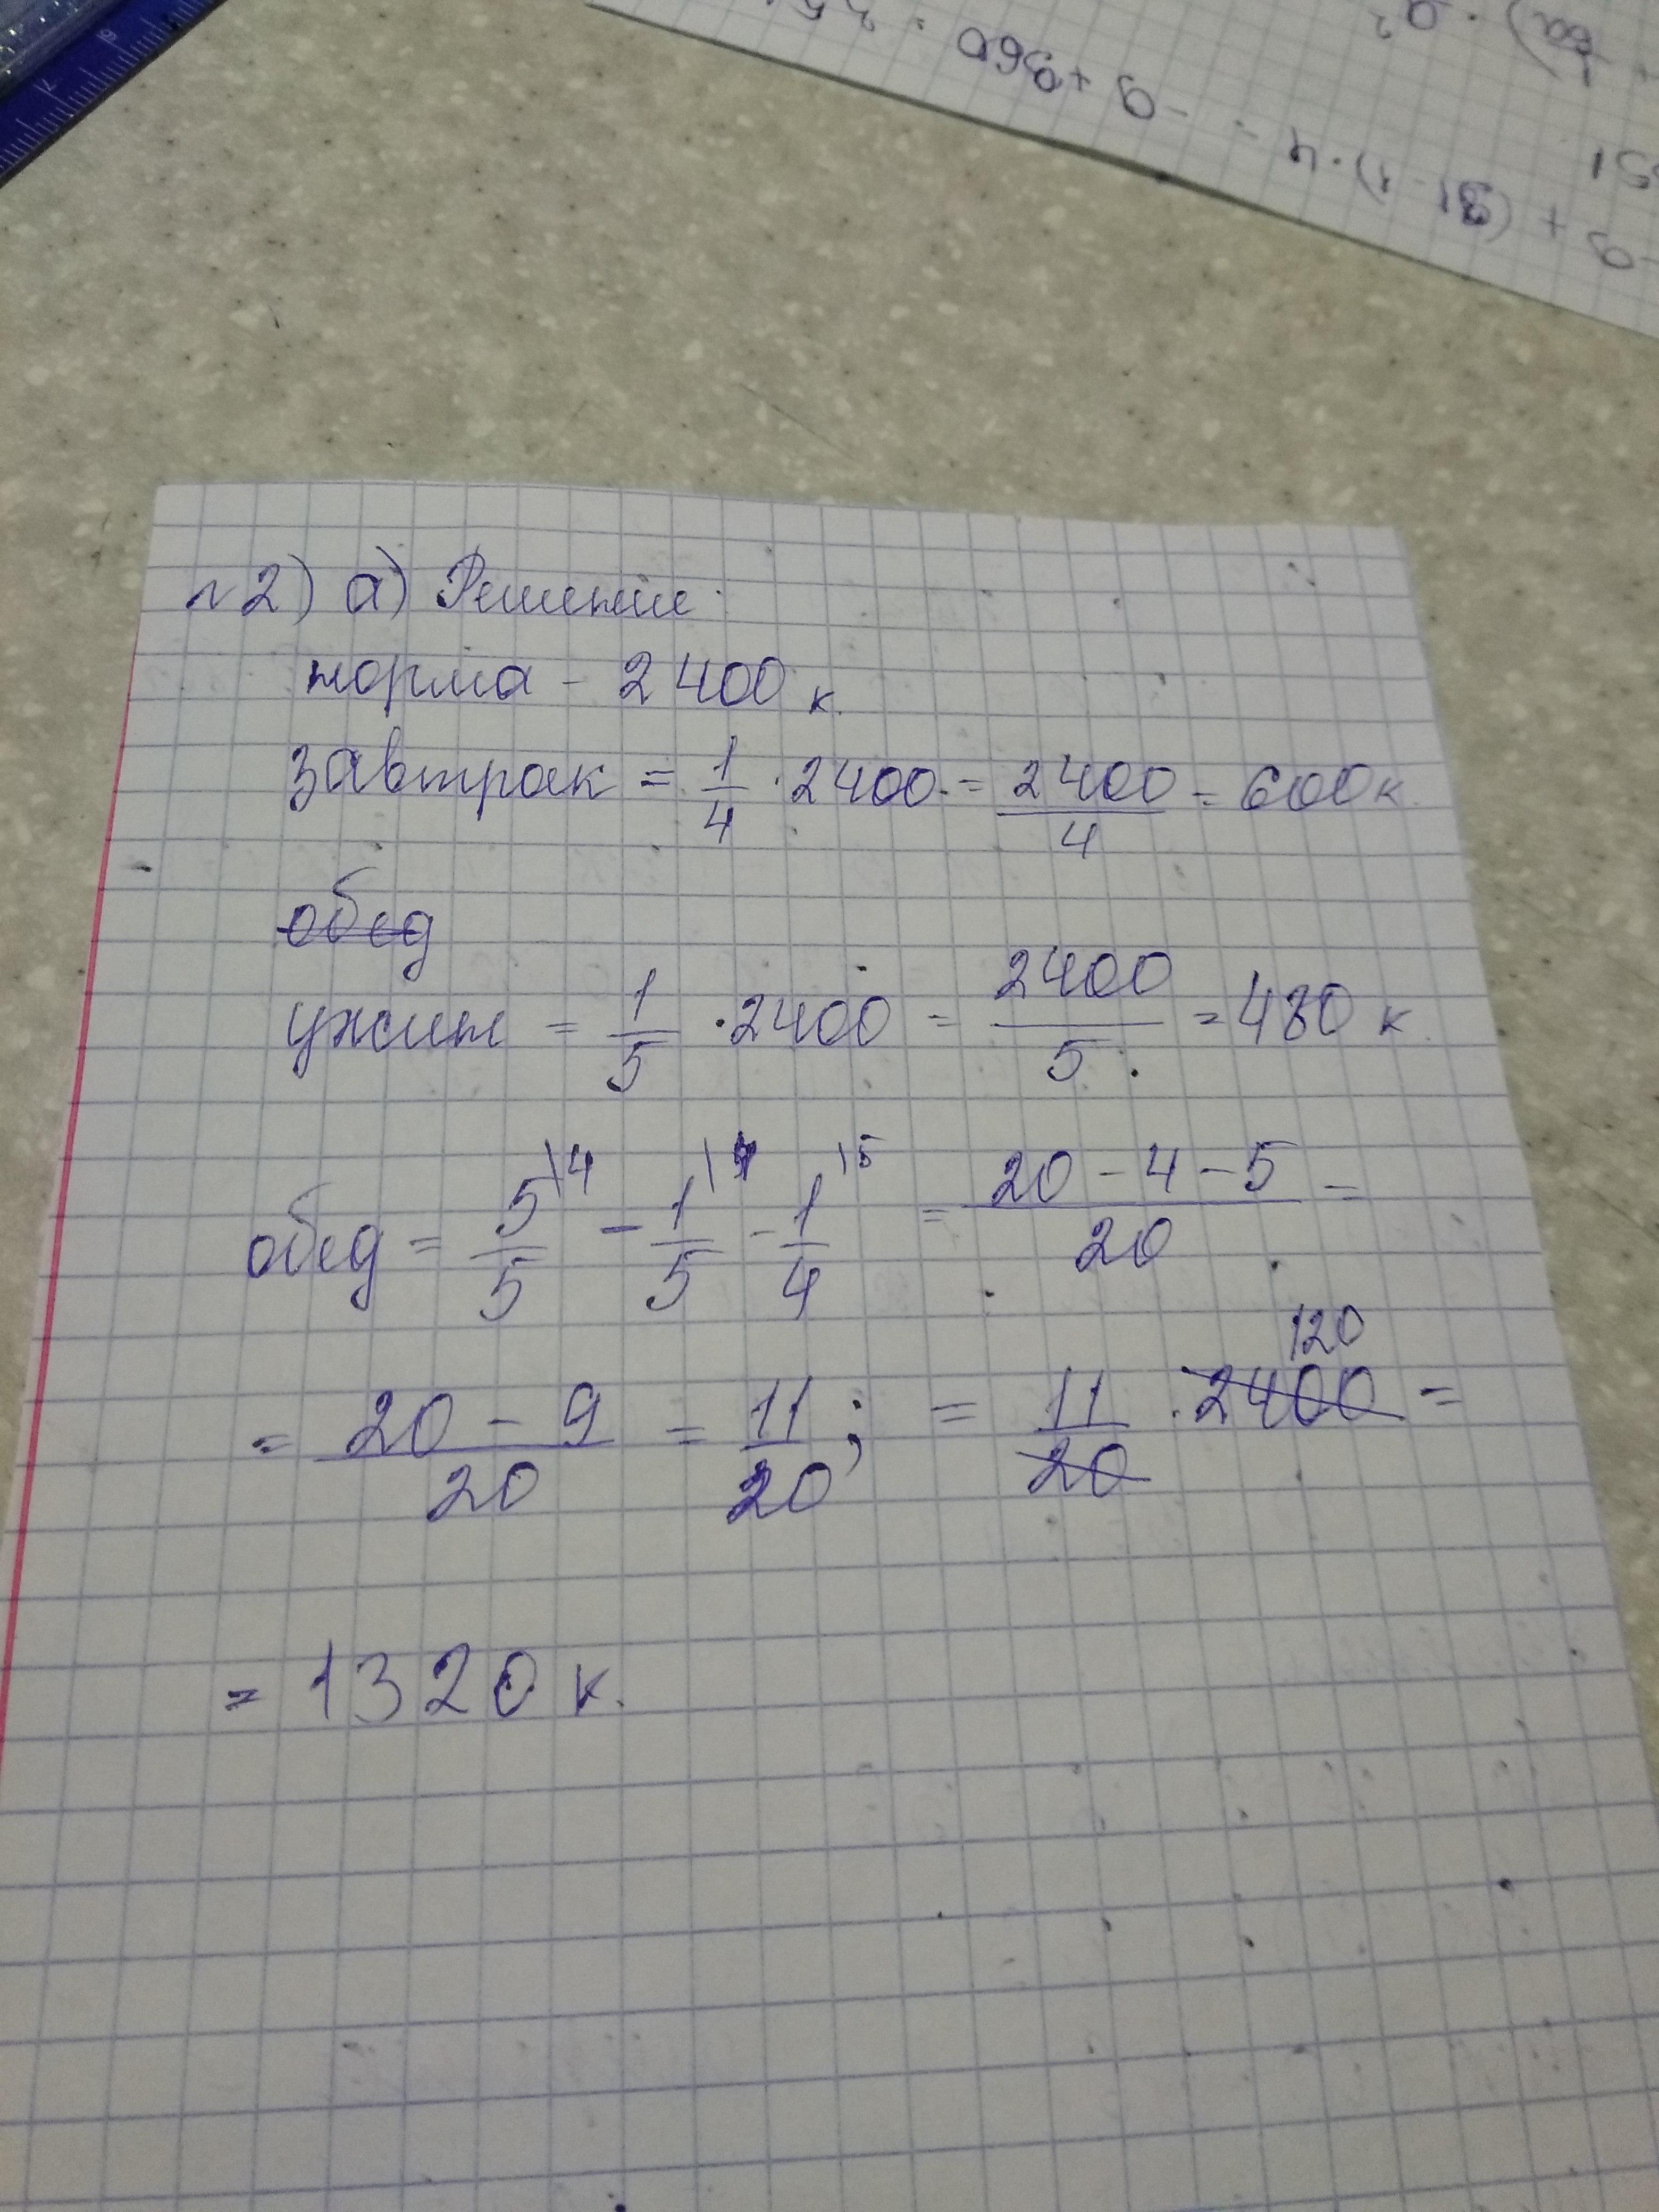 -9 + (91-1)·4 = -9 + 360 = 351
№2) а) Решение:
норма - 2400 к.
завтрак = 1/4 · 2400 = 2400/4 = 600 к.
обед
ужин = 1/5 · 2400 = 2400/5 = 480 к.
обед = 5/5 \4 - 1/5 \4 - 1/4 \5 = (20 - 4 - 5)/20 =
= (20 - 9)/20 = 11/20 ; = 11/20 · 2400 120 =
= 1320 к.